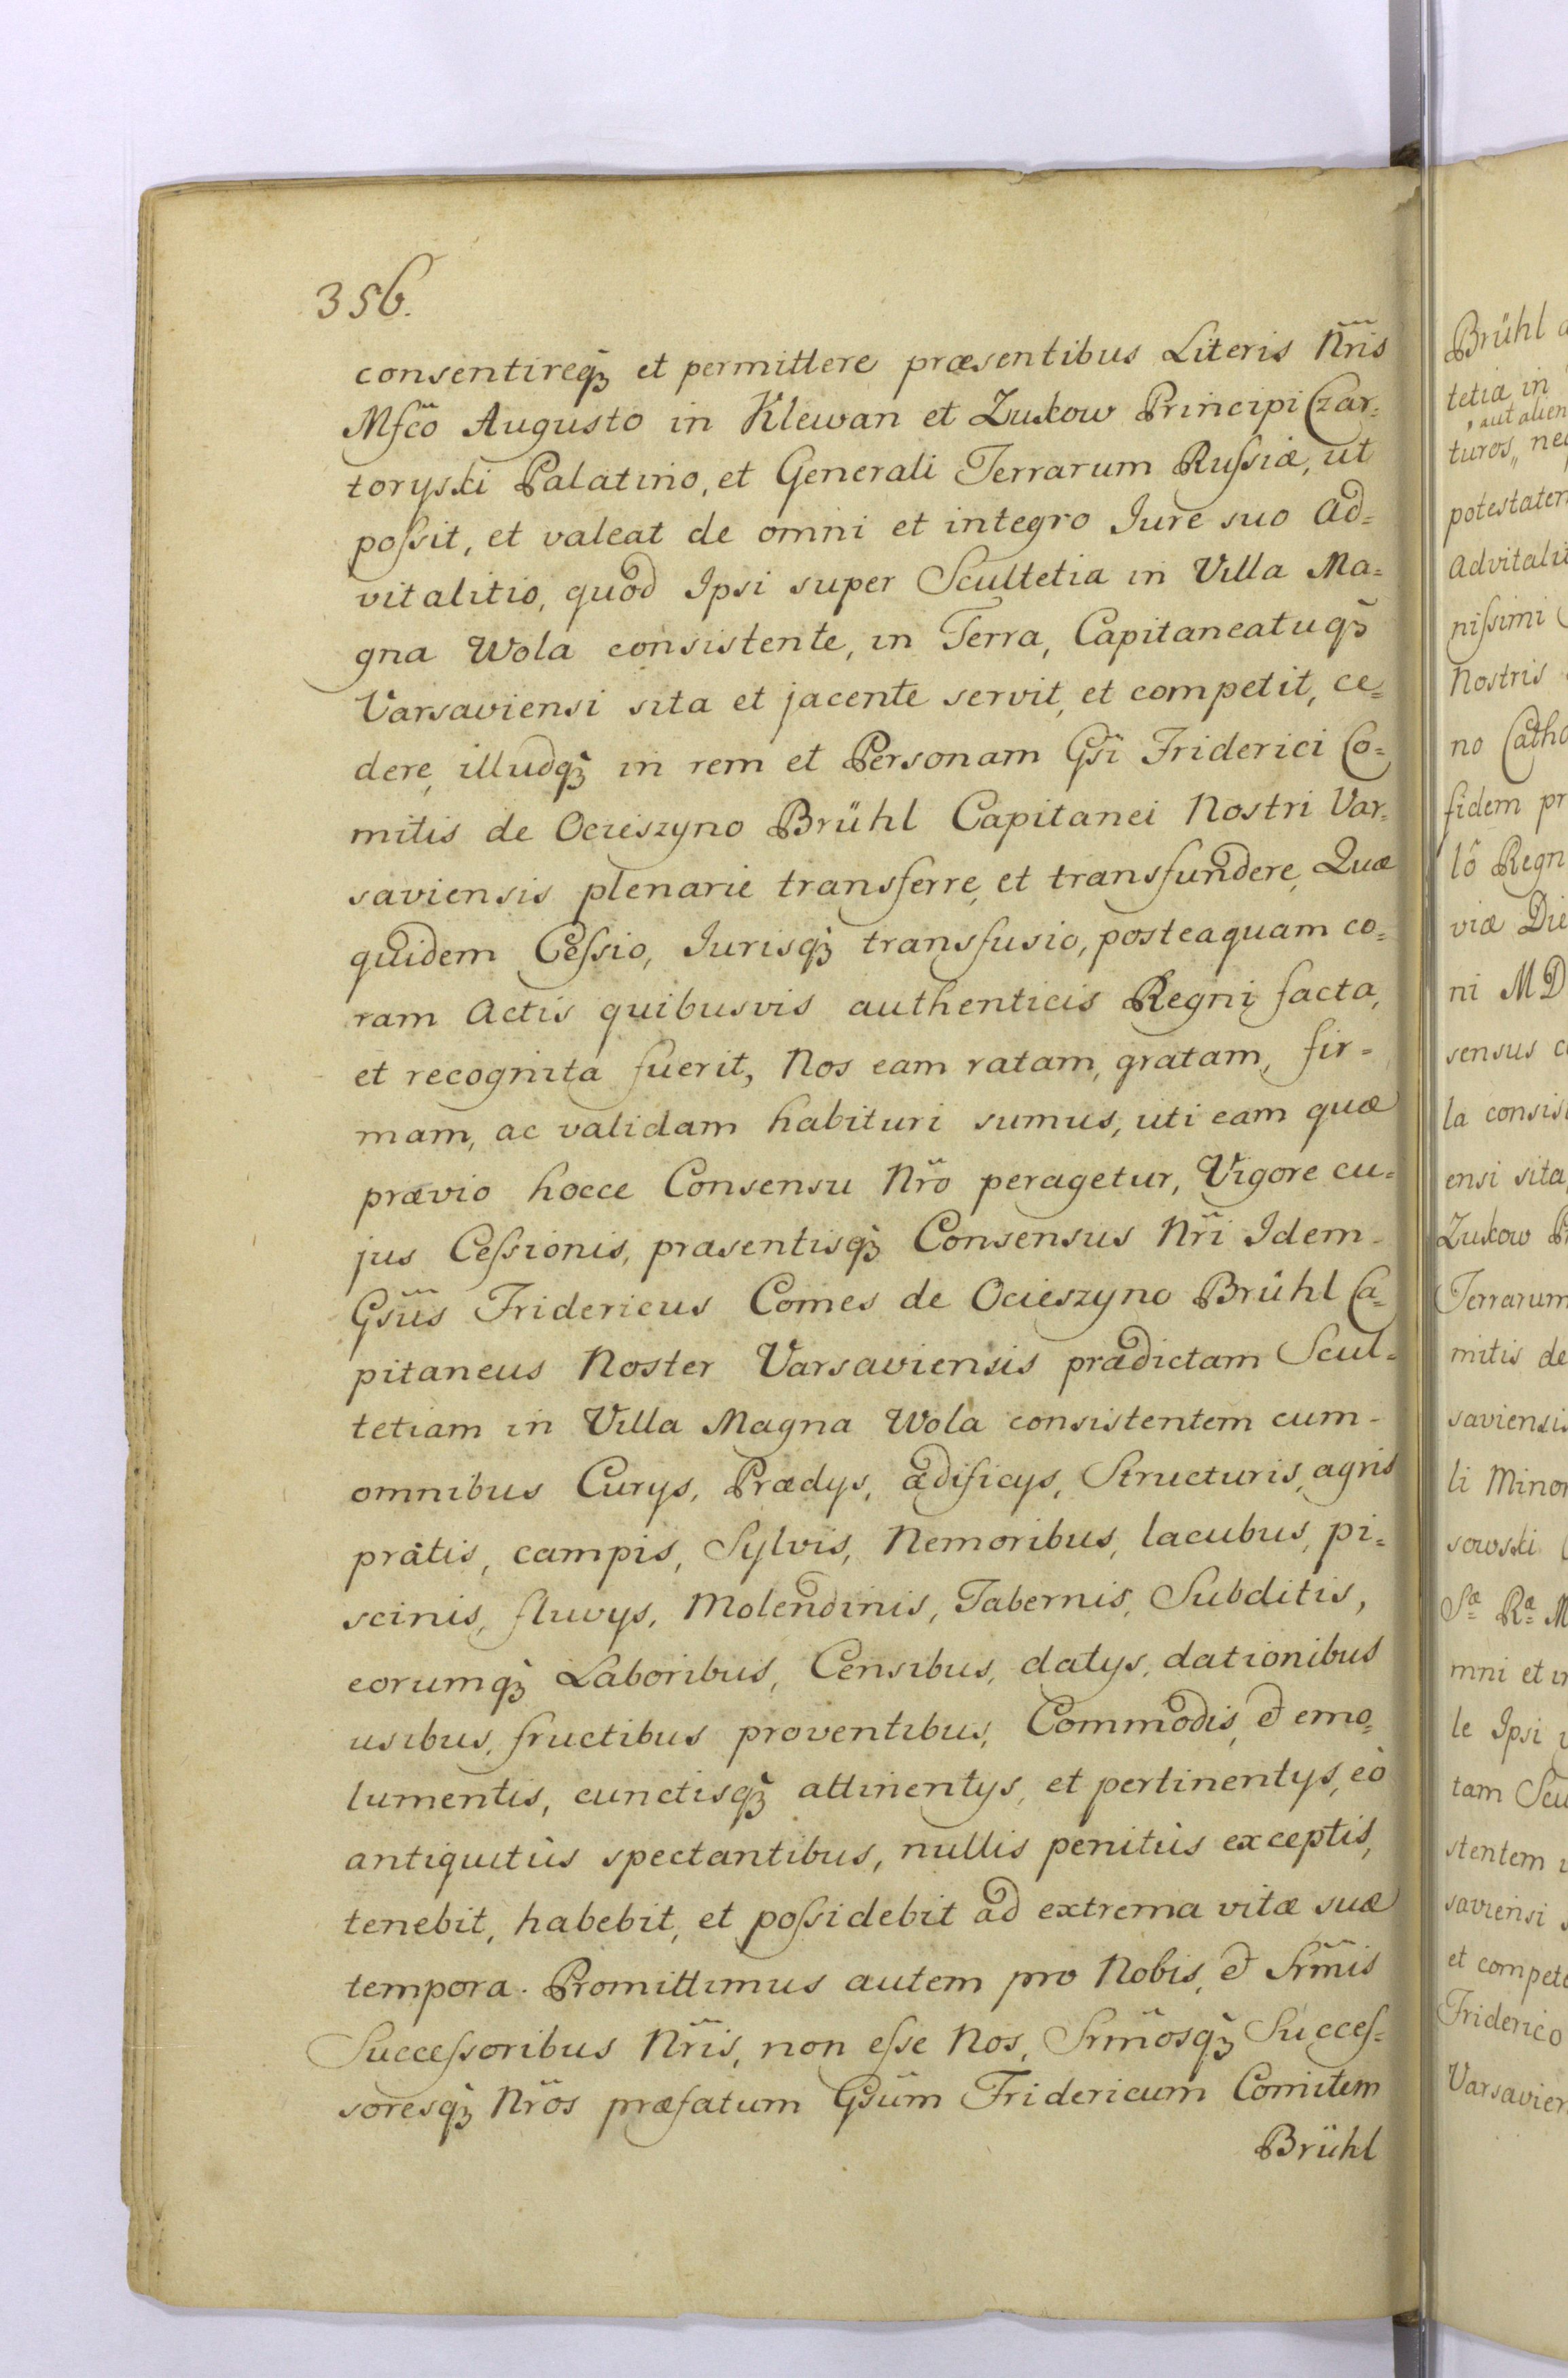 356.
consentireq́ꝫ et permittere præsentibus Literis Nr̃is
Mfcõ Augusto in Klewan et Zukow Principi Czar=
toryski Palatino, et Generali Terrarum Russiæ, ut
possit, et valeat de omni et integro Jure suo Ad=
vitalitio, quod Ipsi super Scultetia in Villa Ma=
gna Wola consistente, in Terra, Capitaneatuq́ꝫ
Varsaviensi sita et jacente servit, et competit, ce=
dere, illudq́ꝫ in rem et Personam Gsĩ Friderici Co=
mitis de Ocieszyno Brühl Capitanei Nostri Var=
saviensis plenarie transferre, et transfundere, Quæ
quidem Cessio, Jurisq́ꝫ transfusio, posteaquam co=
ram Actis quibusvis authenticis Regni facta,
et recognita fuerit, Nos eam ratam, gratam, fir=
mam, ac validam habituri sumus, uti eam quæ
prævio hocce Consensu Nr̃o peragetur, Vigore cu=
jus Cessionis, præsentisq́ꝫ Consensus Nr̃i Idem-
Gsũs Fridericus Comes de Ocieszyno Brühl Ca=
pitaneus Noster Varsaviensis prædictam Scul=
tetiam in Villa Magna Wola consistentem cum-
omnibus Curys, Prædys, ædificys, Structuris, agris
pratis, campis, Sylvis, Nemoribus, lacubus, pi=
scinis, fluvys, Molendinis, Tabernis, Subditis,
eorumq́ꝫ Laboribus, Censibus, datys, dationibus
usibus, fructibus proventibus, Commodis, et emo=
lumentis, cunctisq́ꝫ attinentys, et pertinentys, eò
antiquitùs spectantibus, nullis penitùs exceptis,
tenebit, habebit, et possidebit ad extrema vitæ suæ
tempora. Promittimus autem pro Nobis, et Srm̃is
Successoribus Nr̃is, non esse Nos, Srm̃osq́ꝫ Succes=
soresq́ꝫ Nr̃os præfatum Gsũm Fridericum Comitem
Brühl
Brühl
tetia in
aut alien
turos,
potestatem
Advitali
nissimi
Nostris
no Catho
fidem pr
lô Regn
viæ Die
ni MD
sensus c
la consis
ensi sita
Zukow P
Terrarum
mitis de
saviensis
li Minor
sowski
Sæ Ræ M
mni et i
le Ipsi
tam Scu
stentem
saviensi s
et compete
Friderico
Varsavien